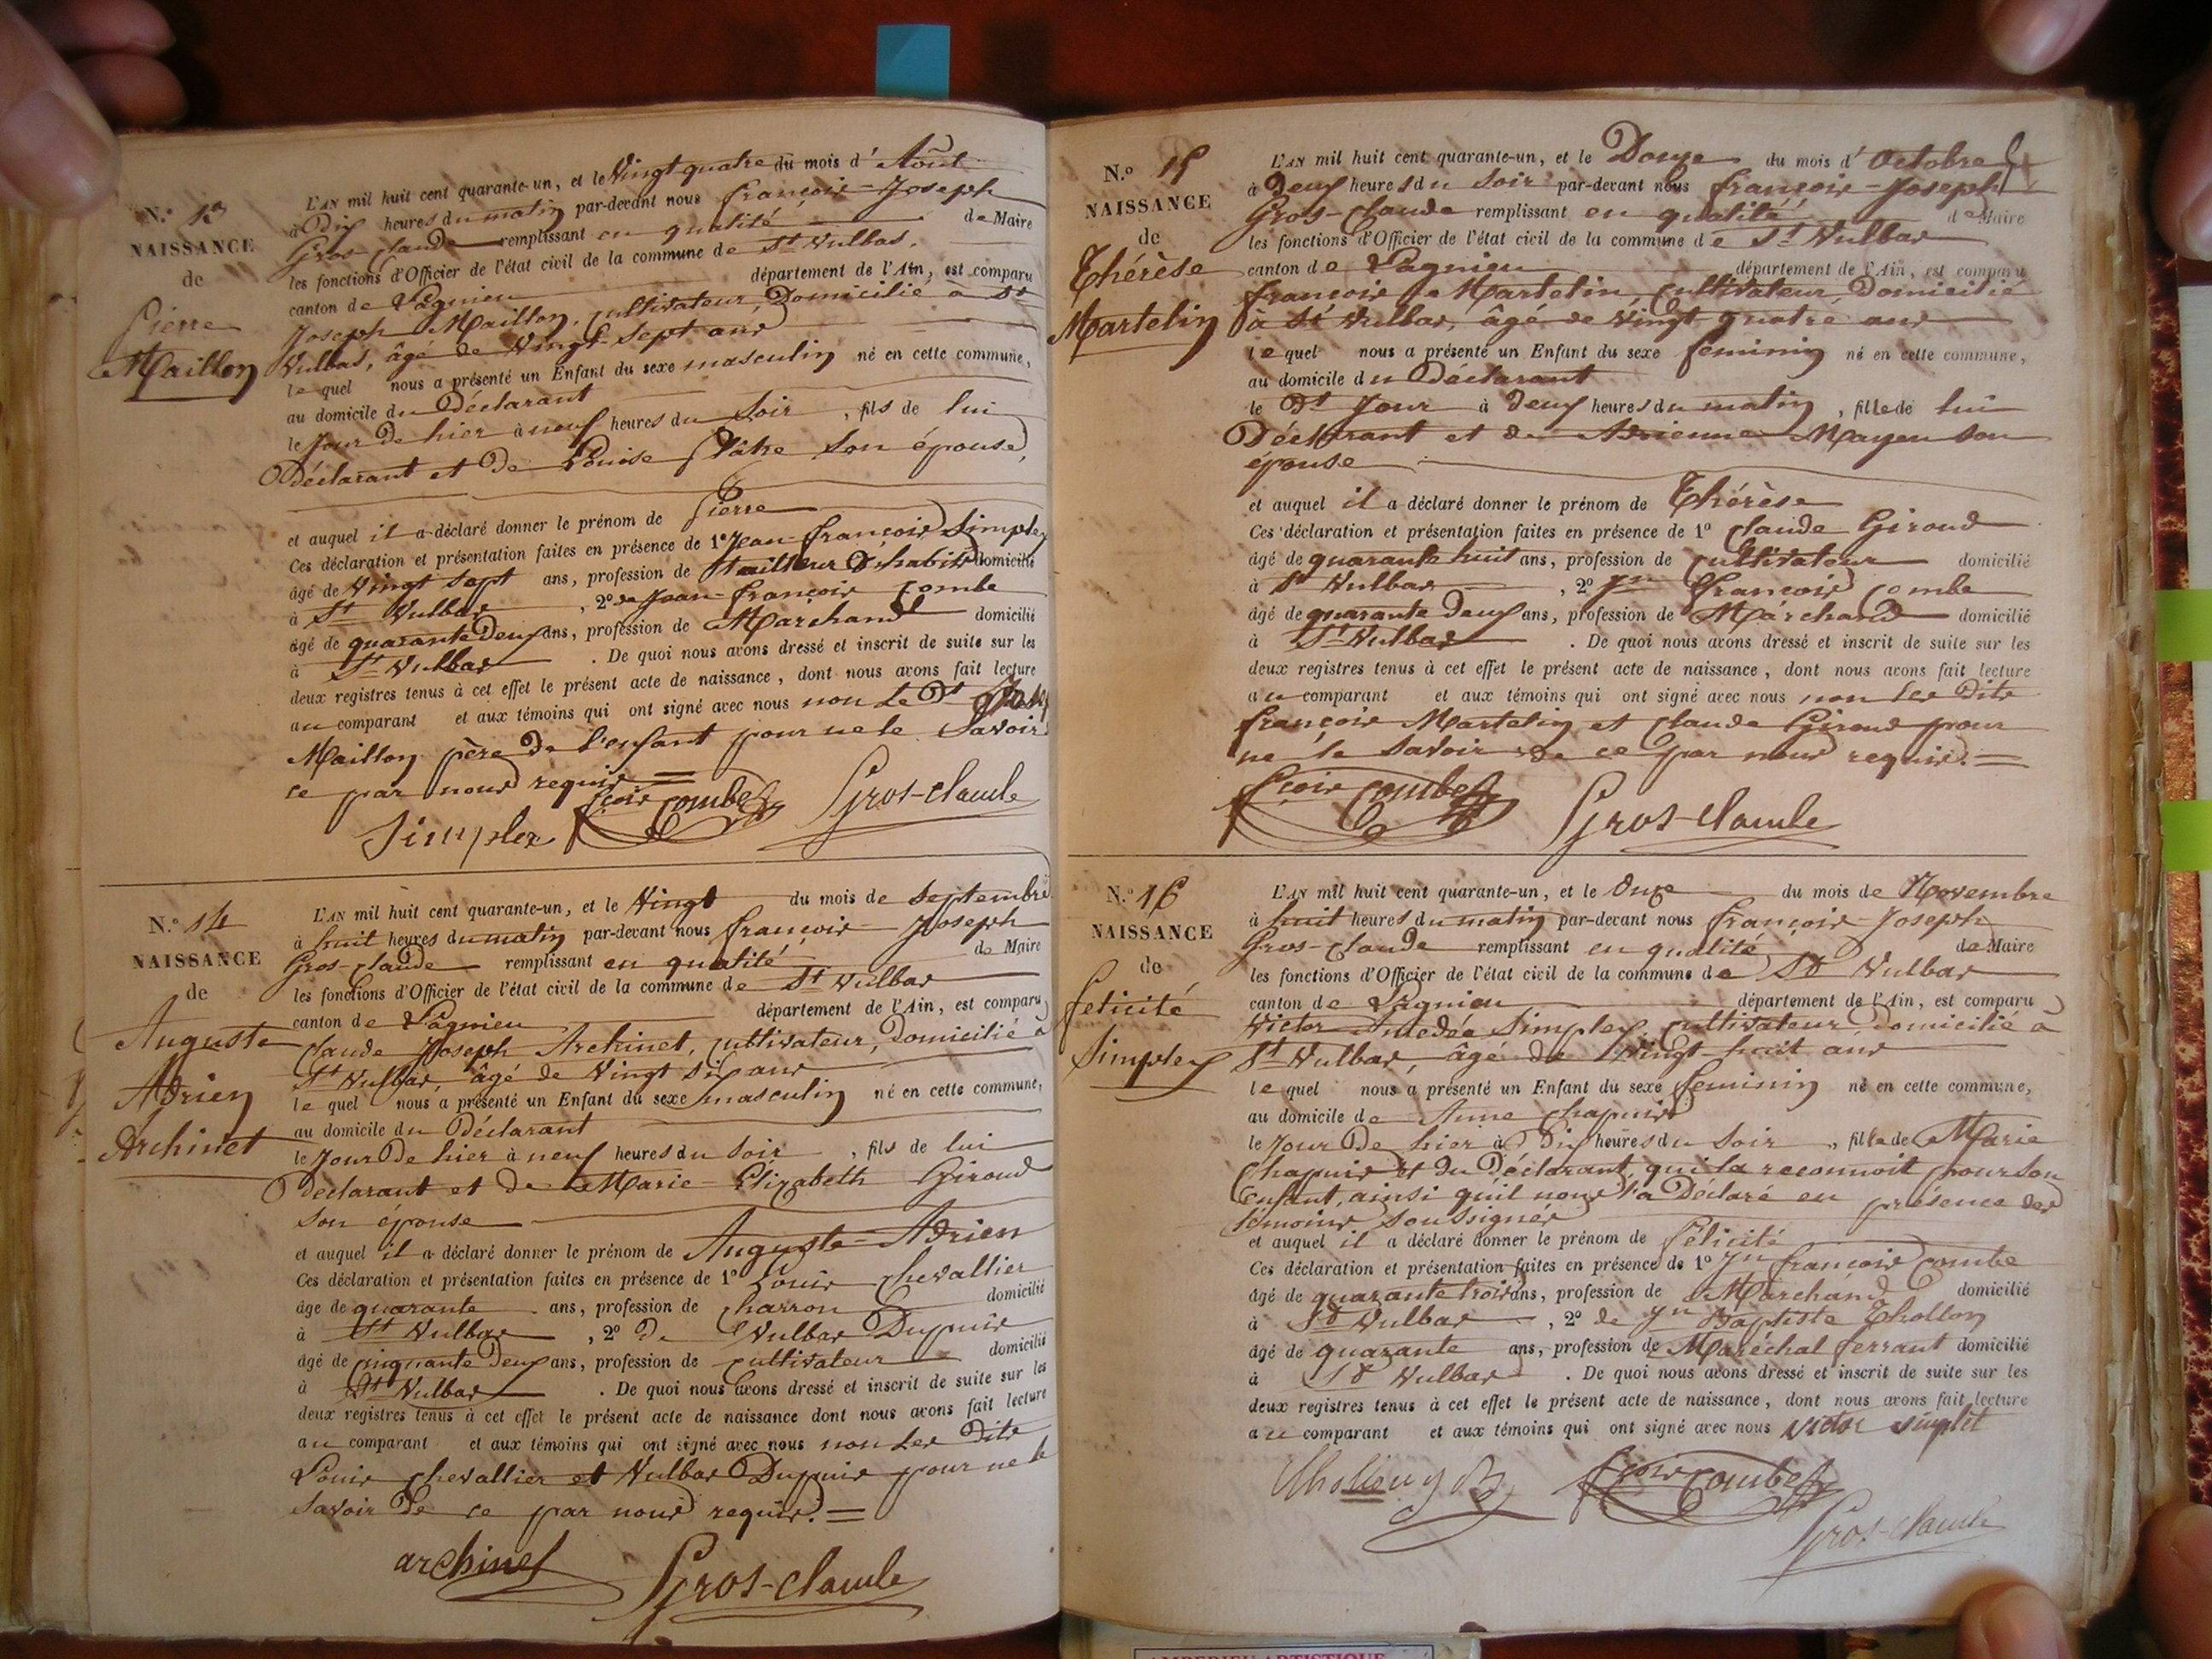 N.º 13
NAISSANCE
de
Pierre
Maillon
L'AN mil huit cent quarante-un, et le Vingt quatre du mois d'Août
à Dix heures du matin par-devant nous françois-Joseph
Gros-Claude remplissant en qualité de Maire
les fonctions d'Officier de l'état civil de la commune de St Vulbas,
canton de Lagnieu département de l'Ain, est comparu
Joseph Maillon, cultivateur, Domicilié à St
Vulbas, âgé de Vingt-sept ans
lequel nous a présenté un Enfant du sexe masculin né en cette commune,
au domicile du Déclarant
le Jour de hier à neuf heures du Soir, fils de lui
Déclarant et de Louise son épouse,
et auquel il a déclaré donner le prénom de Pierre
Ces déclaration et présentation faites en présence de 1º Jean-françois Simplex
âgé de Vingt sept ans, profession de tailleur d'habits domicilié
à St Vulbas, 2º de Jean-françois Combe
âgé de quarante Deux ans, profession de Marchand domicilié
à St Vulbas. De quoi nous avons dressé et inscrit de suite sur les
deux registres tenus à cet effet le présent acte de naissance, dont nous avons fait lecture
au comparant et aux témoins qui ont signé avec nous non Le Dt
Maillon père de l'enfant pour ne le Savoir
ce par nous requis. =
Simplex fçois Combe Gros-claude
N.º 14
NAISSANCE
de
Auguste
Adrien
Archinet
L'AN mil huit cent quarante-un, et le Vingt du mois de Septembre
à huit heures du matin par-devant nous françois-Joseph
Gros-Claude remplissant en qualité de Maire
les fonctions d'Officier de l'état civil de la commune de St Vulbas
canton de Lagnieu département de l'Ain, est comparu
Claude Joseph Archinet, cultivateur, Domicilié à
St Vulbas, âgé de Vingt six ans
lequel nous a présenté un Enfant du sexe masculin né en cette commune,
au domicile du Déclarant
le Jour de hier à neuf heures du Soir, fils de lui
Déclarant et de Marie-Elizabeth Giroud
son épouse
et auquel il a déclaré donner le prénom de Auguste-Adrien
Ces déclaration et présentation faites en présence de 1º Louis Chevallier
âgé de quarante ans, profession de Charron domicilié
à St Vulbas, 2º de Vulbas Dupuis
âgé de cinquante Deux ans, profession de cultivateur domicilié
à St Vulbas. De quoi nous avons dressé et inscrit de suite sur les
deux registres tenus à cet effet le présent acte de naissance dont nous avons fait lecture
au comparant et aux témoins qui ont signé avec nous non Les Dits
Louis Chevallier et Vulbas Dupuis pour ne le
Savoir de ce par nous requis. =
archinet Gros-claude
N.º 15
NAISSANCE
de
Thérèse
Martelin
L'AN mil huit cent quarante-un, et le Douze du mois d'Octobre
à Deux heures du Soir par-devant nous françois-Joseph
Gros-Claude remplissant en qualité de Maire
les fonctions d'Officier de l'état civil de la commune de St Vulbas
canton de Lagnieu département de l'Ain, est comparu
françois Martelin, cultivateur, Domicilié
à St Vulbas, âgé de Vingt-quatre ans
lequel nous a présenté un Enfant du sexe feminin né en cette commune,
au domicile du Déclarant
le Dt Jour à Deux heures du matin, fille de lui
Déclarant et de Adrienne Mayeu son
épouse
et auquel il a déclaré donner le prénom de Thérèse
Ces déclaration et présentation faites en présence de 1º Claude Giroud
âgé de quarante huit ans, profession de cultivateur domicilié
à St Vulbas, 2º Jn françois Combe
âgé de quarante Deux ans, profession de Marchand domicilié
à St Vulbas. De quoi nous avons dressé et inscrit de suite sur les
deux registres tenus à cet effet le présent acte de naissance, dont nous avons fait lecture
au comparant et aux témoins qui ont signé avec nous non les Dits
françois Martelin et Claude Giroud pour
ne le Savoir de ce par nous requis. =
fçois Combe Gros-claude
N.º 16
NAISSANCE
de
félicité
Simplex
L'AN mil huit cent quarante-un, et le Onze du mois de Novembre
à huit heures du matin par-devant nous françois-Joseph
Gros-Claude remplissant en qualité de Maire
les fonctions d'Officier de l'état civil de la commune de St Vulbas
canton de Lagnieu département de l'Ain, est comparu
Victor Amedée Simplex, cultivateur, Domicilié à
St Vulbas, âgé de Vingt-huit ans
lequel nous a présenté un Enfant du sexe feminin né en cette commune,
au domicile de Anne Chapuis
le Jour de hier à Dix heures du Soir, fille de Marie
Chapuis et du Déclarant, qui la reconnoit pour son
Enfant, ainsi qu'il nous l'a Déclaré en présence des
témoins soussignés
et auquel il a déclaré donner le prénom de félicité
Ces déclaration et présentation faites en présence de 1º Jn françois Combe
âgé de quarante trois ans, profession de Marchand domicilié
à St Vulbas, 2º de Jn Baptiste Thollon
âgé de quarante ans, profession de Maréchal ferrant domicilié
à St Vulbas. De quoi nous avons dressé et inscrit de suite sur les
deux registres tenus à cet effet le présent acte de naissance, dont nous avons fait lecture
au comparant et aux témoins qui ont signé avec nous Victor
fçois Combe
Gros-claude
AMBERIEU ARTISTIQUE